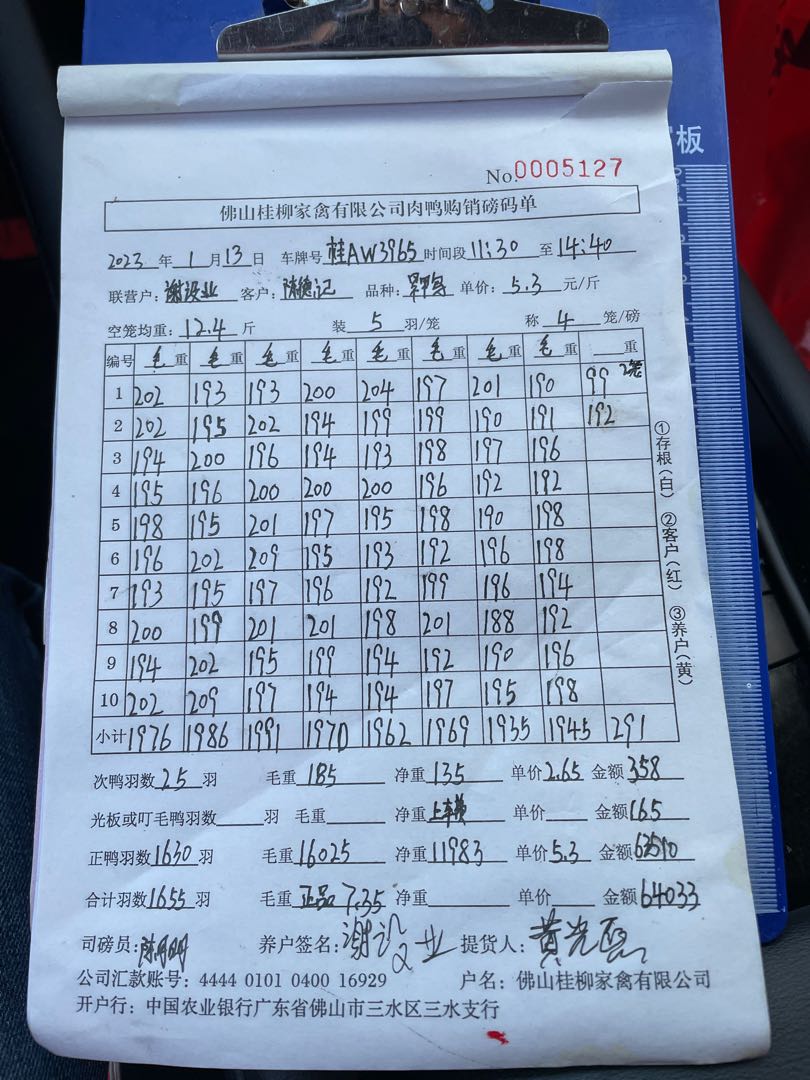 板
No.0005127
佛山桂柳家禽有限公司肉鸭购销磅码单
2023 年 1 月 13 日 车牌号 桂AW3965 时间段 11:30 至 14:40
联营户: 谢设业 客户: 陈德记 品种: 单价: 5.3 元/斤
空笼均重: 12.4 斤 装 5 羽/笼 称 4 笼/磅
编号 毛重 毛重 毛重 毛重 毛重 毛重 毛重 毛重 重
1 202 193 193 200 204 197 201 190 99 2笼
2 202 195 202 194 199 199 190 191 192
3 194 200 196 194 193 198 197 196
4 195 196 200 200 200 196 192 192
5 198 195 201 197 195 198 190 198
6 196 202 209 195 193 192 196 198
7 193 195 197 196 192 199 196 194
8 200 199 201 201 198 201 188 192
9 194 202 195 199 194 192 190 196
10 202 209 197 194 194 197 195 198
小计 1976 1986 1991 1970 1962 1969 1935 1945 291
次鸭羽数 25 羽 毛重 185 净重 135 单价 2.65 金额 358
光板或叮毛鸭羽数 羽 毛重 净重 上车费 单价 金额 165
正鸭羽数 1630 羽 毛重 16025 净重 11983 单价 5.3 金额 63510
合计羽数 1655 羽 毛重 正品 7.35 净重 单价 金额 64033
司磅员: 陈明明 养户签名: 谢设业 提货人:
公司汇款账号: 4444 0101 0400 16929 户名: 佛山桂柳家禽有限公司
开户行: 中国农业银行广东省佛山市三水区三水支行
①存根(白) ②客户(红) ③养户(黄)